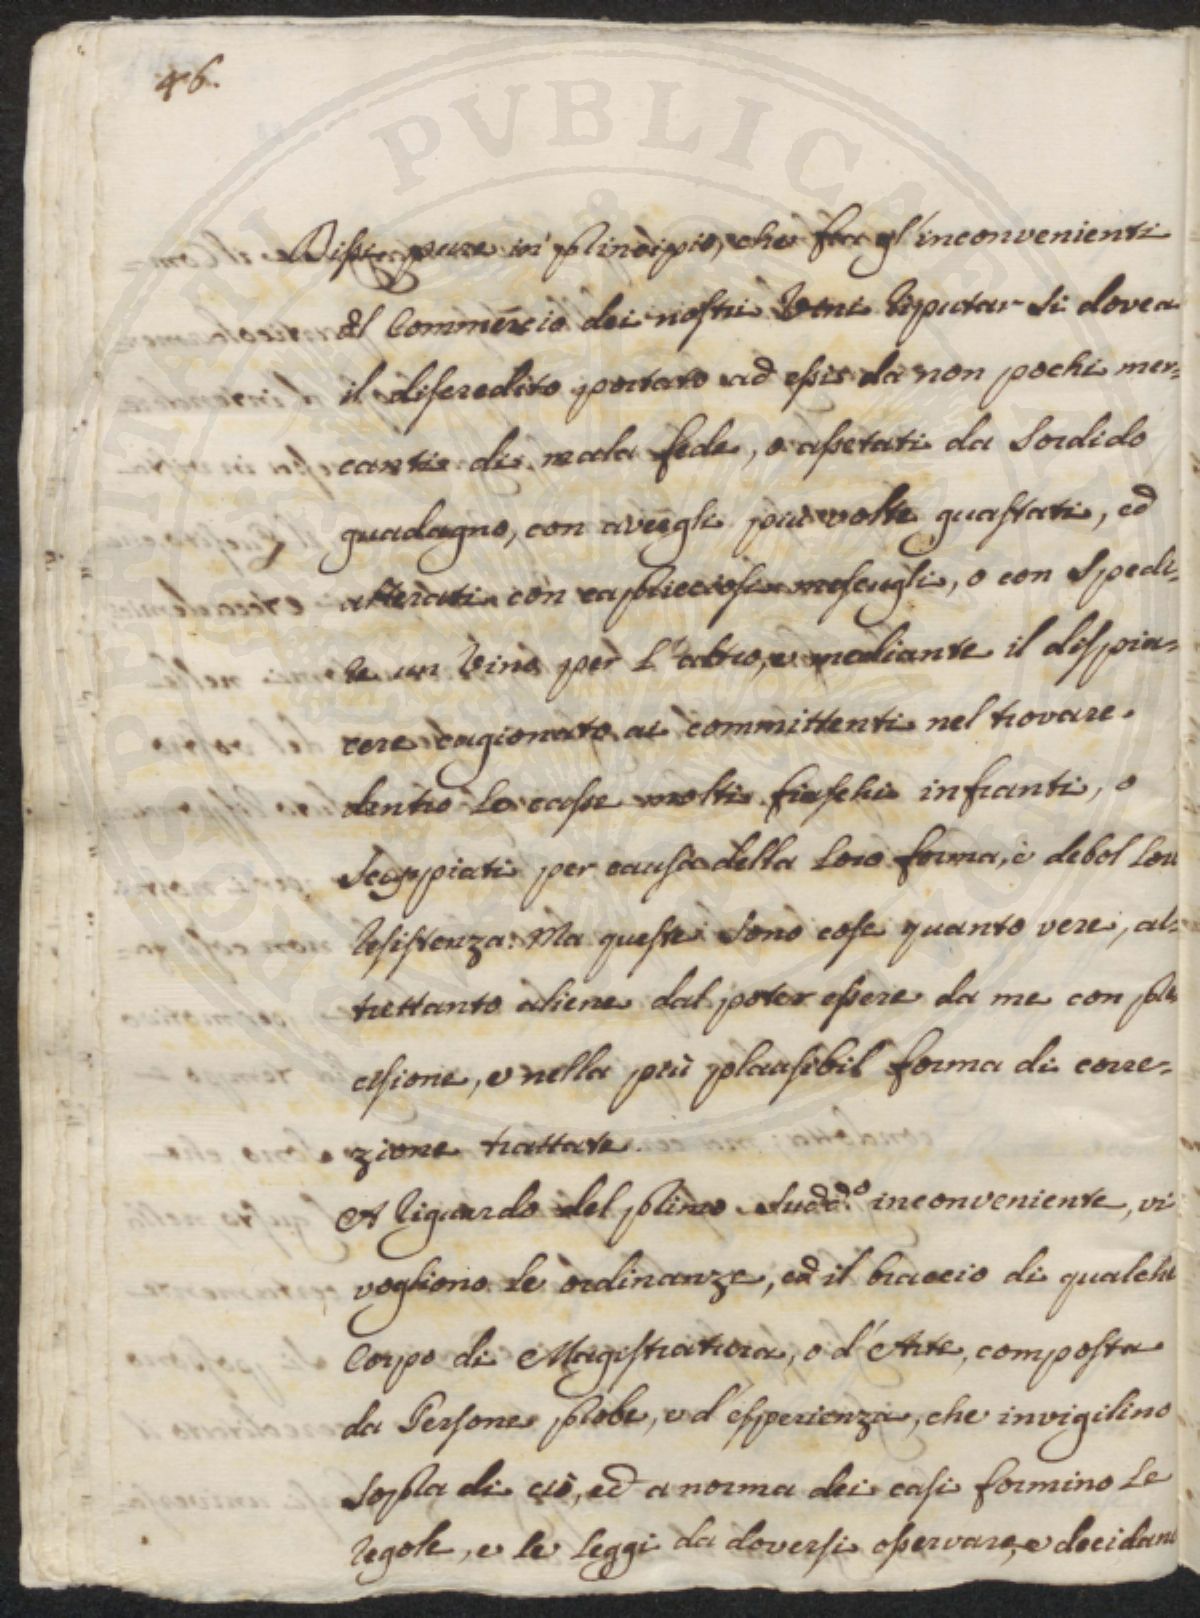 46.
PUBLICAE
Dissi pure in principio, che fra gl'inconvenienti
al Commercio dei nostri Vini riputar si dovea
il discredito portato ad essi da non pochi mer=
canti di mala fede, o assetati da sordido
guadagno, con avergli più volte guastati, ed
alterati con capricciosi mescugli, o con spedi=
re un Vino per l'altro, e mediante il dispia=
cere cagionato ai committenti nel trovare
dentro le casse molti fiaschi infranti, o
scoppiati per causa della loro forma, e debol loro
resistenza: Ma queste sono cose quanto vere, al=
trettanto aliene dal poter essere da me con pre
cisione, e nella più plausibil forma di corre=
zione trattate.
A riguardo del primo sudd.º inconveniente, vi
vogliono le ordinanze, ed il braccio di qualche
Corpo di Magistratura, o d'Arte, composta
da Persone probe, e d'esperienza, che invigilino
sopra di ciò, ed a norma dei casi formino le
regole, e le leggi da doversi osservare, e decidano